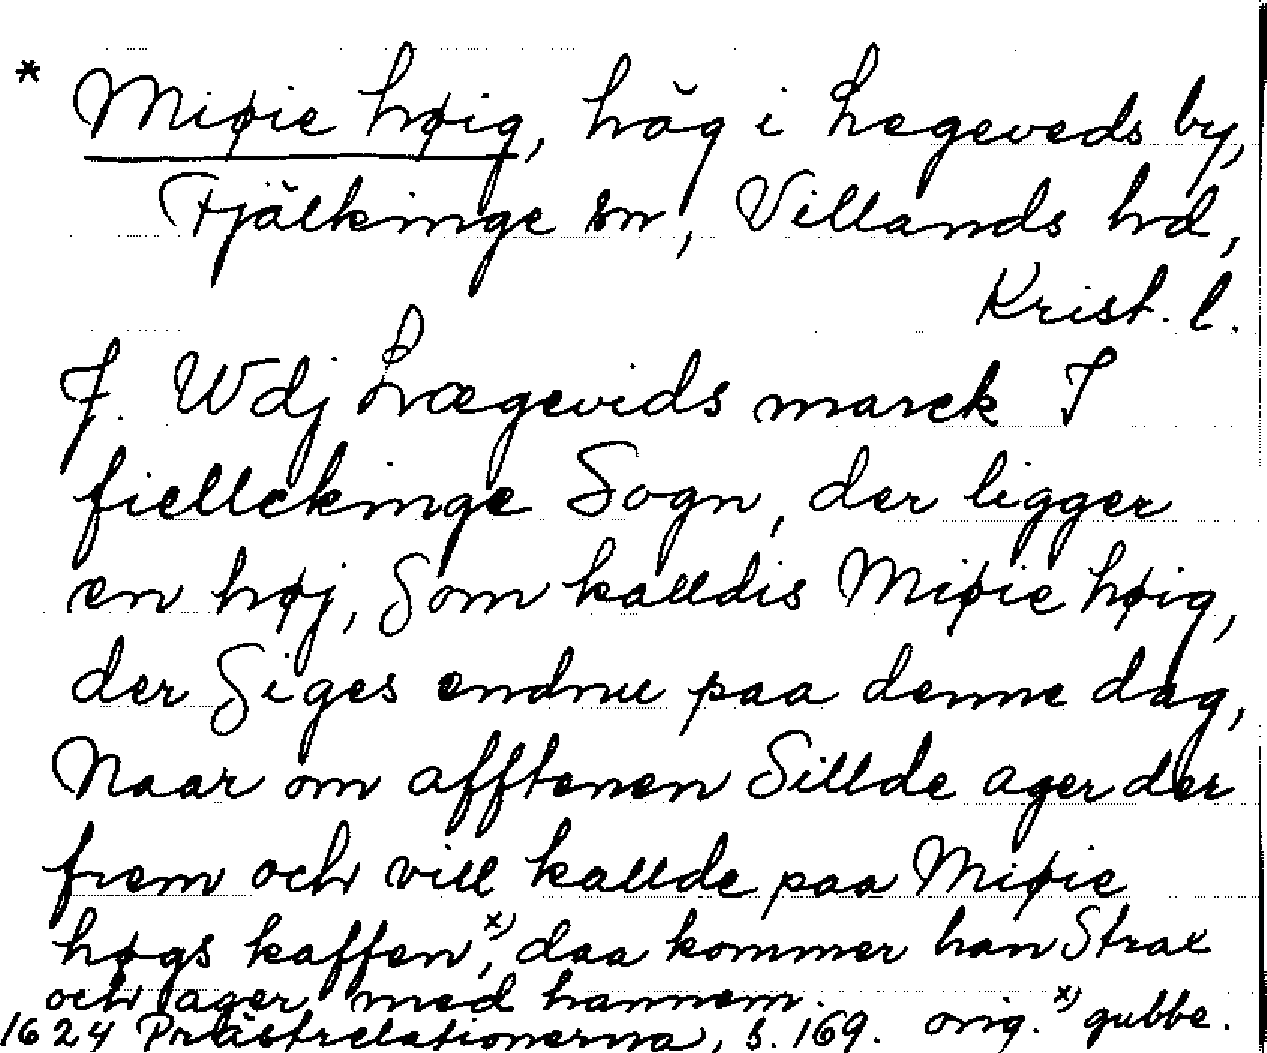 * Miøie høig, hög i Legeveds by,
Fjälkinge sn, Villands hd,
Krist. l.
J. Wdj Lægevids marck I
fiellckinge Sogn, der ligger
en høj, Som kalldis Miøie høig,
der Siges endnu paa denne dag,
Naar om afftenen Sillde ager der
frem och vill kallde paa Miøie
høgs kaffen,x) daa kommer han Strax
och ager med hannem.
1624 Prästrelationerna, s. 169. orig. x) gubbe.